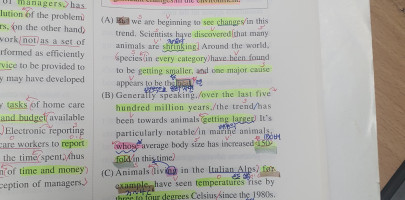 of managers, has
lution of the problem
rs, on the other hand,
work, not as a set of
rformed as efficiently
vice to be provided to
y may have developed
y tasks of home care
and budget available
Electronic reporting
care workers to report
the time spent, thus
n of time and money
ception of managers,
(A) But we are beginning to see changes in this
trend. Scientists have discovered that many
animals are shrinking. Around the world,
species in every category have been found
to be getting smaller, and one major cause
appears to be the
(B) Generally speaking, over the last five
hundred million years, the trend has
been towards animals getting larger. It's
particularly notable in marine animals,
whose average body size has increased 150-
fold in this time.
(C) Animals living in the Italian Alps, for
example, have seen temperatures rise by
three to four degrees Celsius since the 1980s.